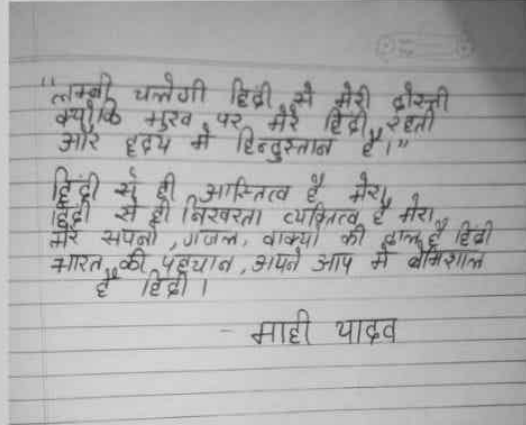 "लम्बी चलेगी हिंदी से मेरी दोस्ती
क्योंकि मुख पर मेरे हिंदी रहती
और हृदय में हिन्दुस्तान है।"
हिंदी से ही अस्तित्व है मेरा,
हिंदी से ही निखरता व्यक्तित्व है मेरा
मेरे सपनो, गजल, वाक्यों की ढाल है हिंदी
भारत की पहचान, अपने आप में बेमिशाल
है हिंदी।
- माही यादव